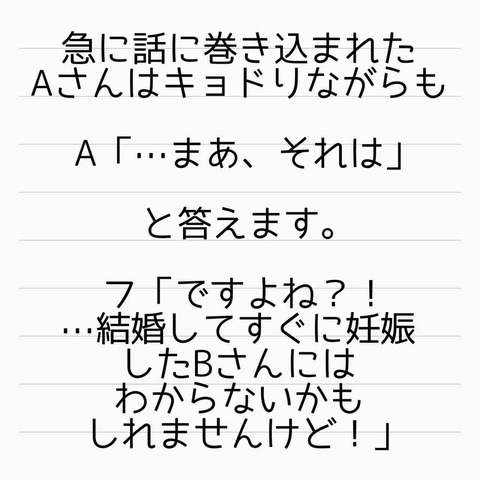 急に話に巻き込まれた
Aさんはキョドりながらも
A「…まあ、それは」
と答えます。
フ「ですよね？！
…結婚してすぐに妊娠
したBさんには
わからないかも
しれませんけど！」